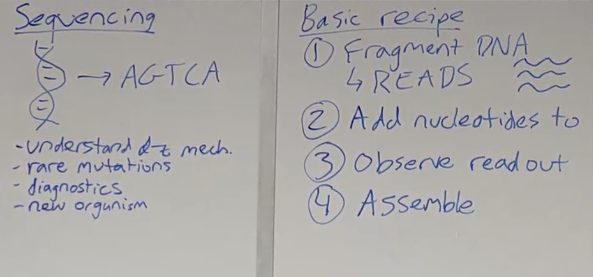 Sequencing
→ AGTCA
- understand dz mech.
- rare mutations
- diagnostics
- new organism
Basic recipe
① Fragment DNA
↳ READS
② Add nucleotides to
③ Observe readout
④ Assemble